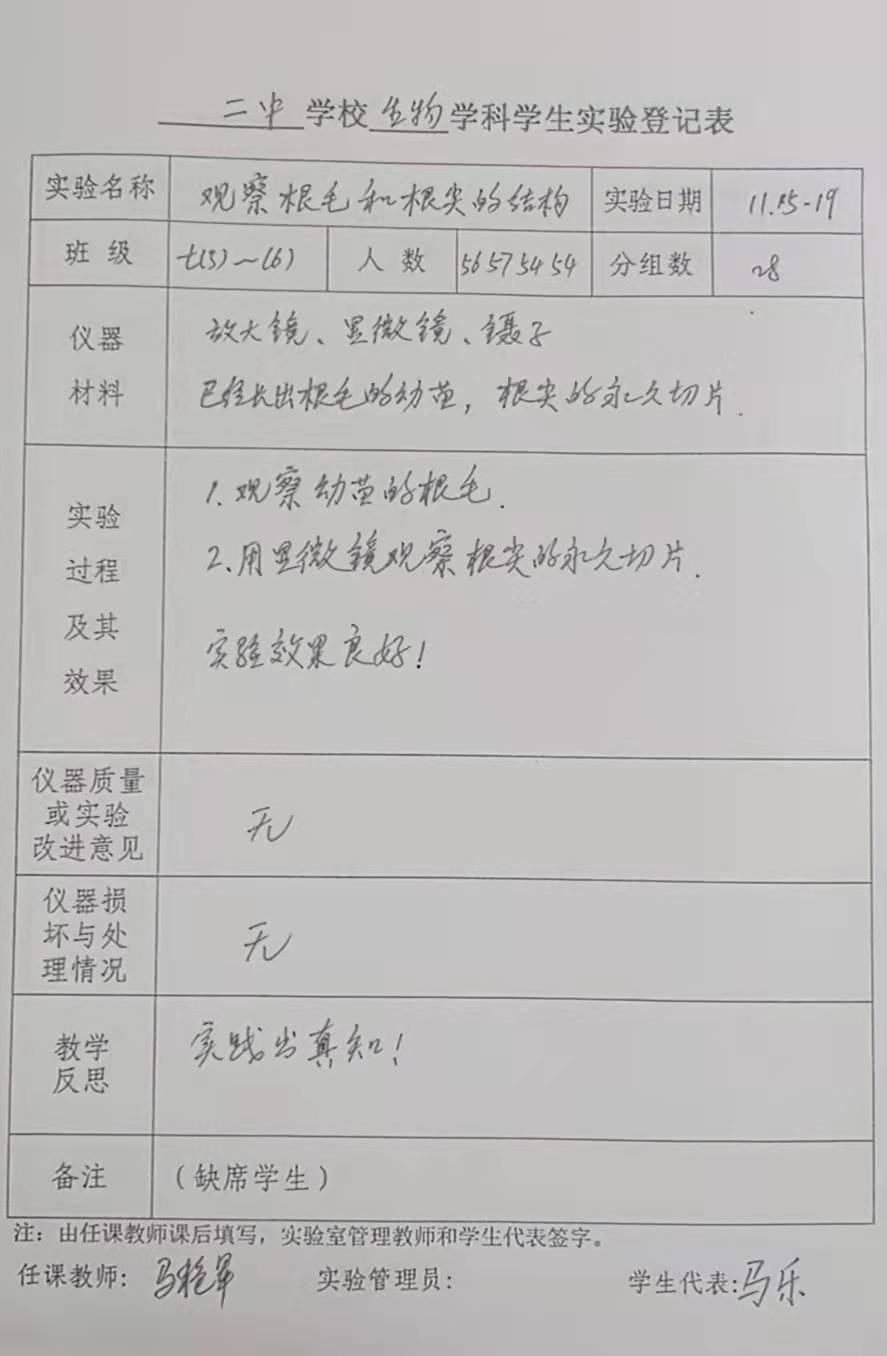 二中学校生物学科学生实验登记表
实验名称 观察根毛和根尖的结构 实验日期 11.15-19
班级 七(3)～(6) 人数 56 57 54 54 分组数 28
仪器
材料
放大镜、显微镜、镊子
已经长出根毛的幼苗，根尖的永久切片.
实验
过程
及其
效果
1.观察幼苗的根毛.
2.用显微镜观察根尖的永久切片.
实验效果良好！
仪器质量
或实验
改进意见
无
仪器损
坏与处
理情况
无
教学
反思
实践出真知！
备注 （缺席学生）
注：由任课教师课后填写，实验室管理教师和学生代表签字。
任课教师：马艳 实验管理员： 学生代表:马乐